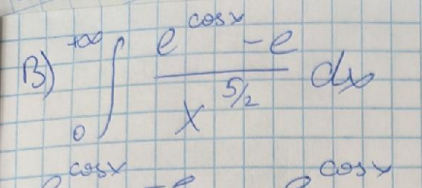 В) ∫₀^{+∞} (e^{cosx} - e) / x^{5/2} dx
cosx e cosx